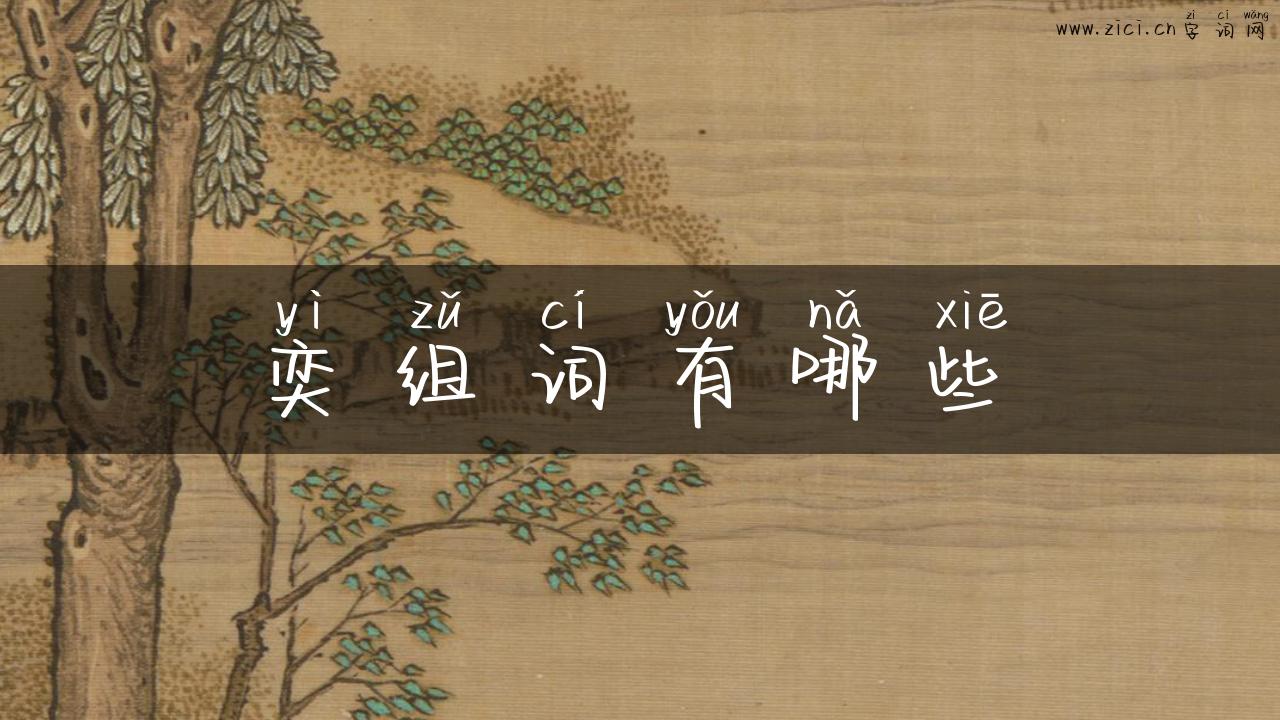 zì cí wǎng
www.zici.cn字词网
yì zǔ cí yǒu nǎ xiē
奕组词有哪些